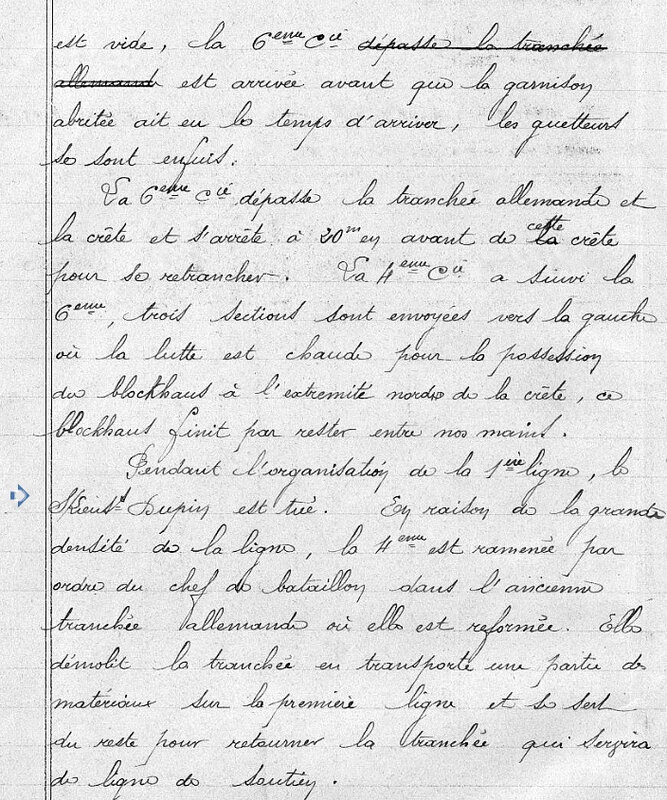 est vide, la 6ème Cie dépasse la tranchée
allemande est arrivée avant que la garnison
abritée ait eu le temps d'arriver, les guetteurs
se sont enfuis.
La 6ème Cie dépasse la tranchée allemande et
la crête et s'arrête à 20m en avant de cette la crête
pour se retrancher. La 4ème Cie a suivi la
6ème, trois sections sont envoyées vers la gauche
où la lutte est chaude pour la possession
du blockhaus à l'extremité nord de la crête, ce
blockhaus finit par rester entre nos mains.
Pendant l'organisation de la 1ère ligne, le
Dupin est tué. En raison de la grande
densité de la ligne, la 4ème est ramenée par
ordre du chef de bataillon dans l'ancienne
tranchée allemande où elle est reformée. Elle
démolit la tranchée en transporte une partie des
matériaux sur la première ligne et se sert
du reste pour retourner la tranchée qui servira
de ligne de soutien.